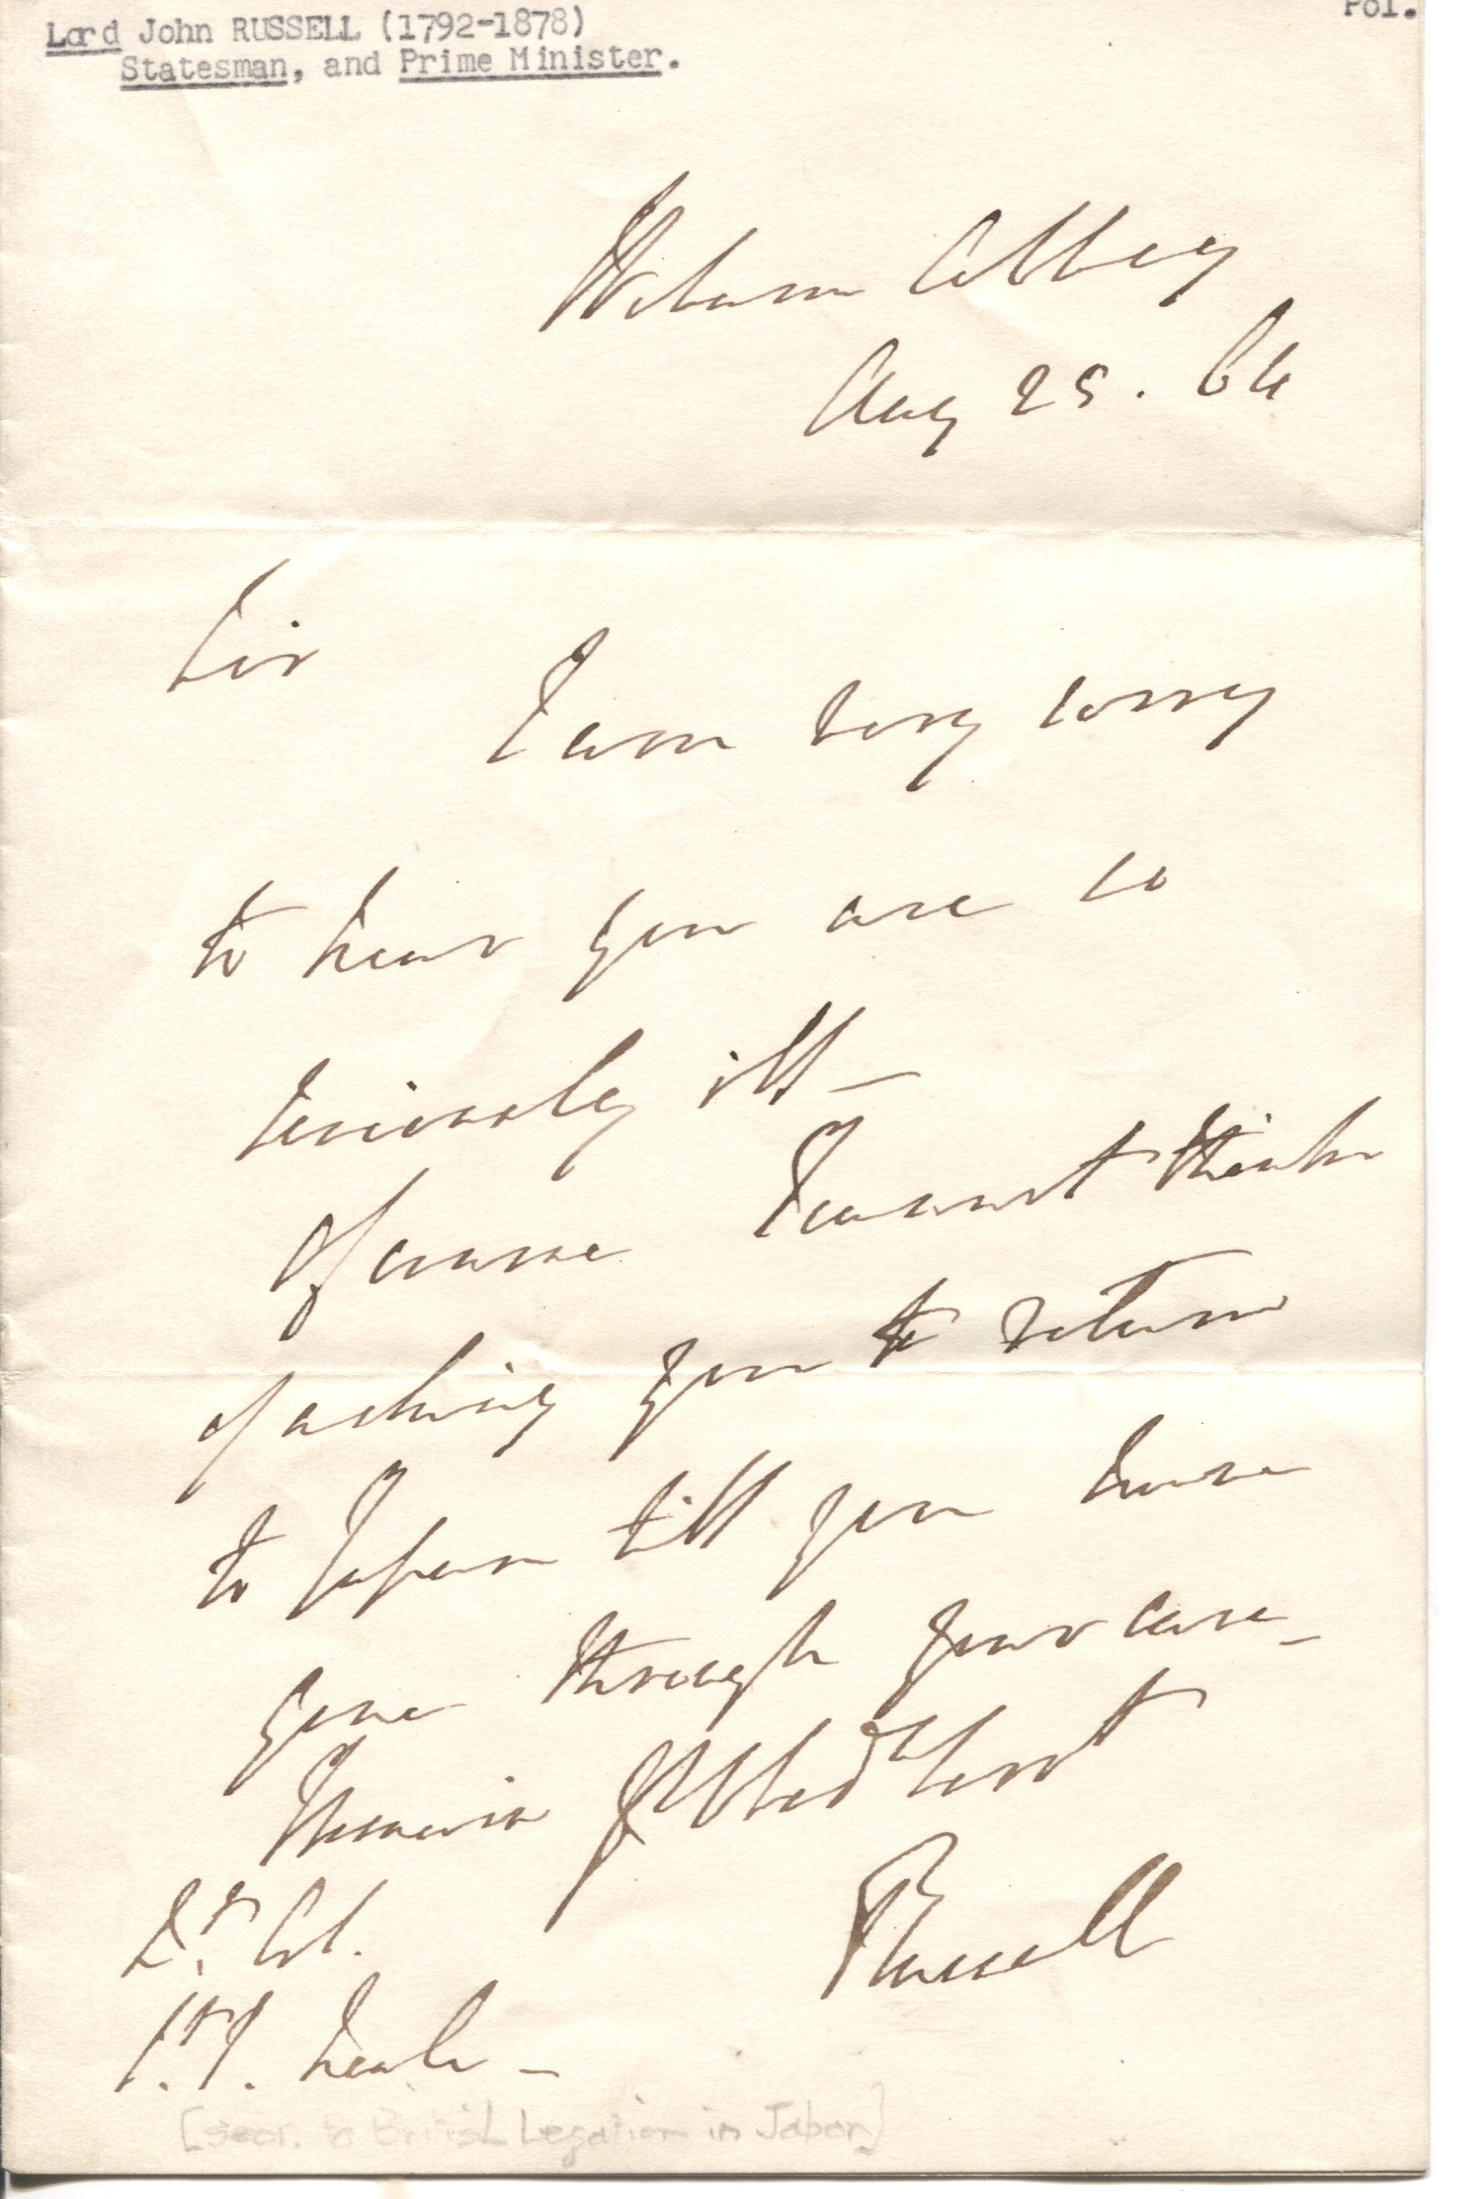 Pol.
Lord John RUSSELL (1792-1878)
Statesman, and Prime Minister.
Woburn Abbey
Aug 25. 64
Sir
I am very sorry
to hear you are so
seriously ill –
Of course I cannot think
of asking you to return
to Japan till you have
gone through your cure –
I remain yr obed Servt
Russell
Lt Col.
Neale –
[secr. to British Legation in Japan]